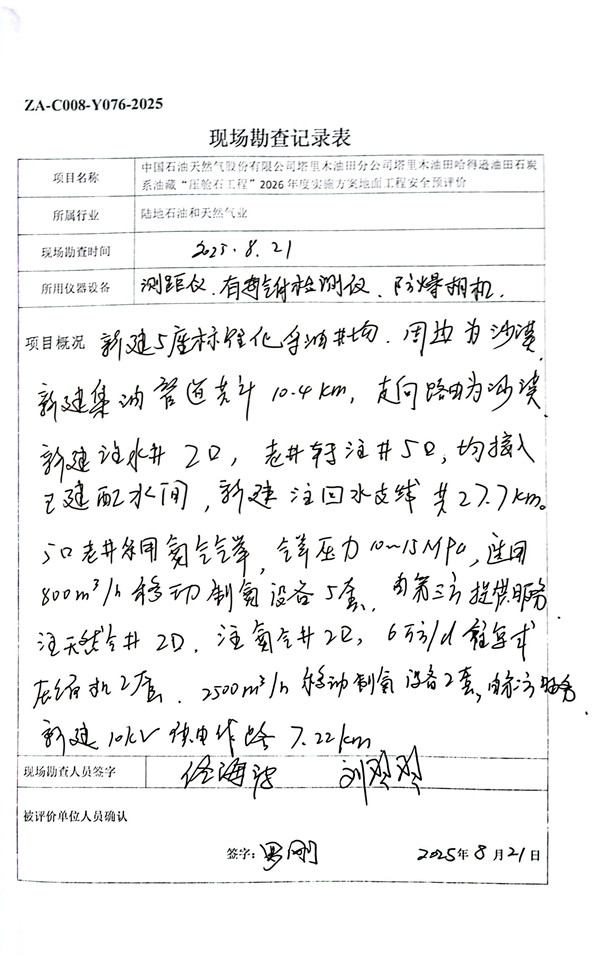 ZA-C008-Y076-2025
现场勘查记录表
项目名称
中国石油天然气股份有限公司塔里木油田分公司塔里木油田哈得逊油田石炭
系油藏“压舱石工程”2026年度实施方案地面工程安全预评价
所属行业
陆地石油和天然气业
现场勘查时间
2025.8.21
所用仪器设备
测距仪、有毒气体检测仪、防爆相机.
项目概况 新建5座标准化采油井场.周边为沙漠.
新建集油管道共计10.4km,走向路由为沙漠
新建注水井2口,老井转注井5口,均接入
已建配水间,新建注回水支线共27.7km。
5口老井采用氮气气举,气举压力10~15MPa,选用
800m³/h移动制氮设备5套.由第三方提供服务
注天然气井2口.注氮气井2口,6万方/d 橇装式
压缩机2套.2500m³/h移动制氮设备2套,由第三方服务.
新建10kV供电线路7.22km
现场勘查人员签字
被评价单位人员确认
签字:
2025年8月21日